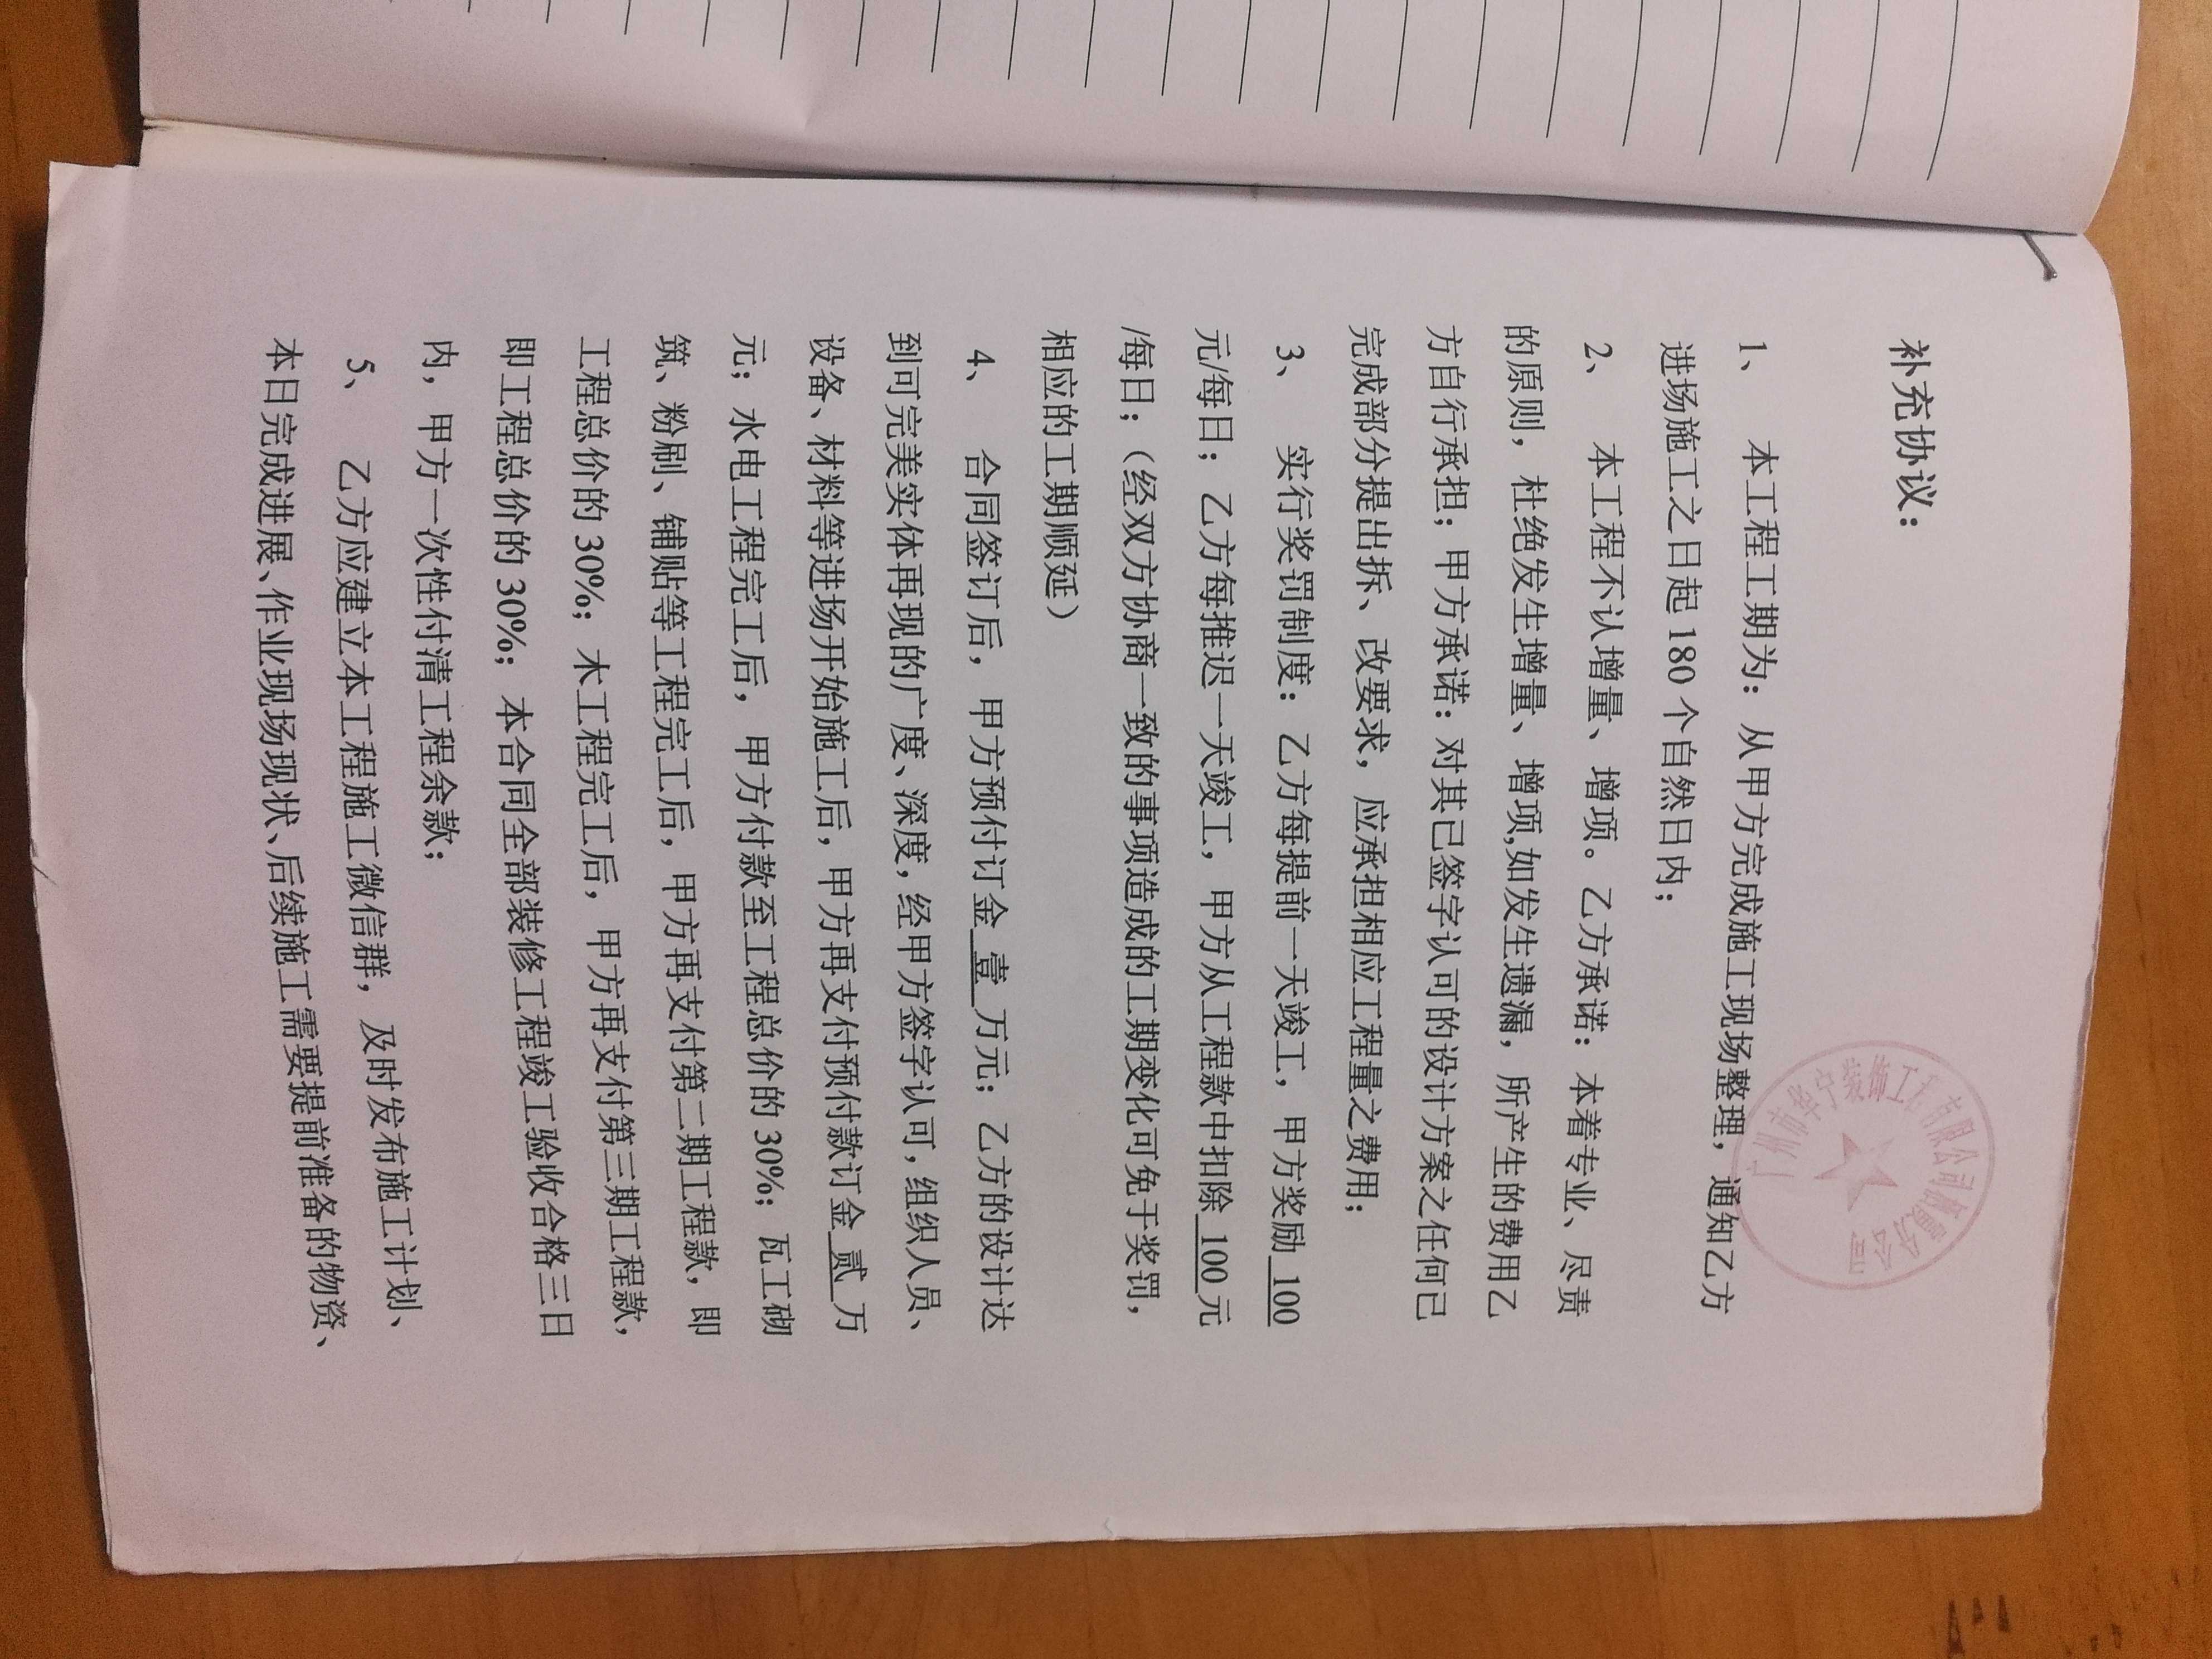 补充协议：
1、 本工程工期为：从甲方完成施工现场整理，通知乙方
进场施工之日起 180 个自然日内；
2、 本工程不认增量、增项。乙方承诺：本着专业、尽责
的原则，杜绝发生增量、增项,如发生遗漏，所产生的费用乙
方自行承担；甲方承诺：对其已签字认可的设计方案之任何已
完成部分提出拆、改要求，应承担相应工程量之费用；
3、 实行奖罚制度：乙方每提前一天竣工，甲方奖励 100
元/每日；乙方每推迟一天竣工，甲方从工程款中扣除 100 元
/每日；（经双方协商一致的事项造成的工期变化可免于奖罚，
相应的工期顺延）
4、 合同签订后，甲方预付订金 壹 万元；乙方的设计达
到可完美实体再现的广度、深度，经甲方签字认可，组织人员、
设备、材料等进场开始施工后，甲方再支付预付款订金 贰 万
元；水电工程完工后，甲方付款至工程总价的 30%；瓦工砌
筑、粉刷、铺贴等工程完工后，甲方再支付第二期工程款，即
工程总价的 30%；木工程完工后，甲方再支付第三期工程款，
即工程总价的 30%；本合同全部装修工程竣工验收合格三日
内，甲方一次性付清工程余款；
5、 乙方应建立本工程施工微信群，及时发布施工计划、
本日完成进展、作业现场现状、后续施工需要提前准备的物资、
广州市华宁装饰工程有限公司 分公司